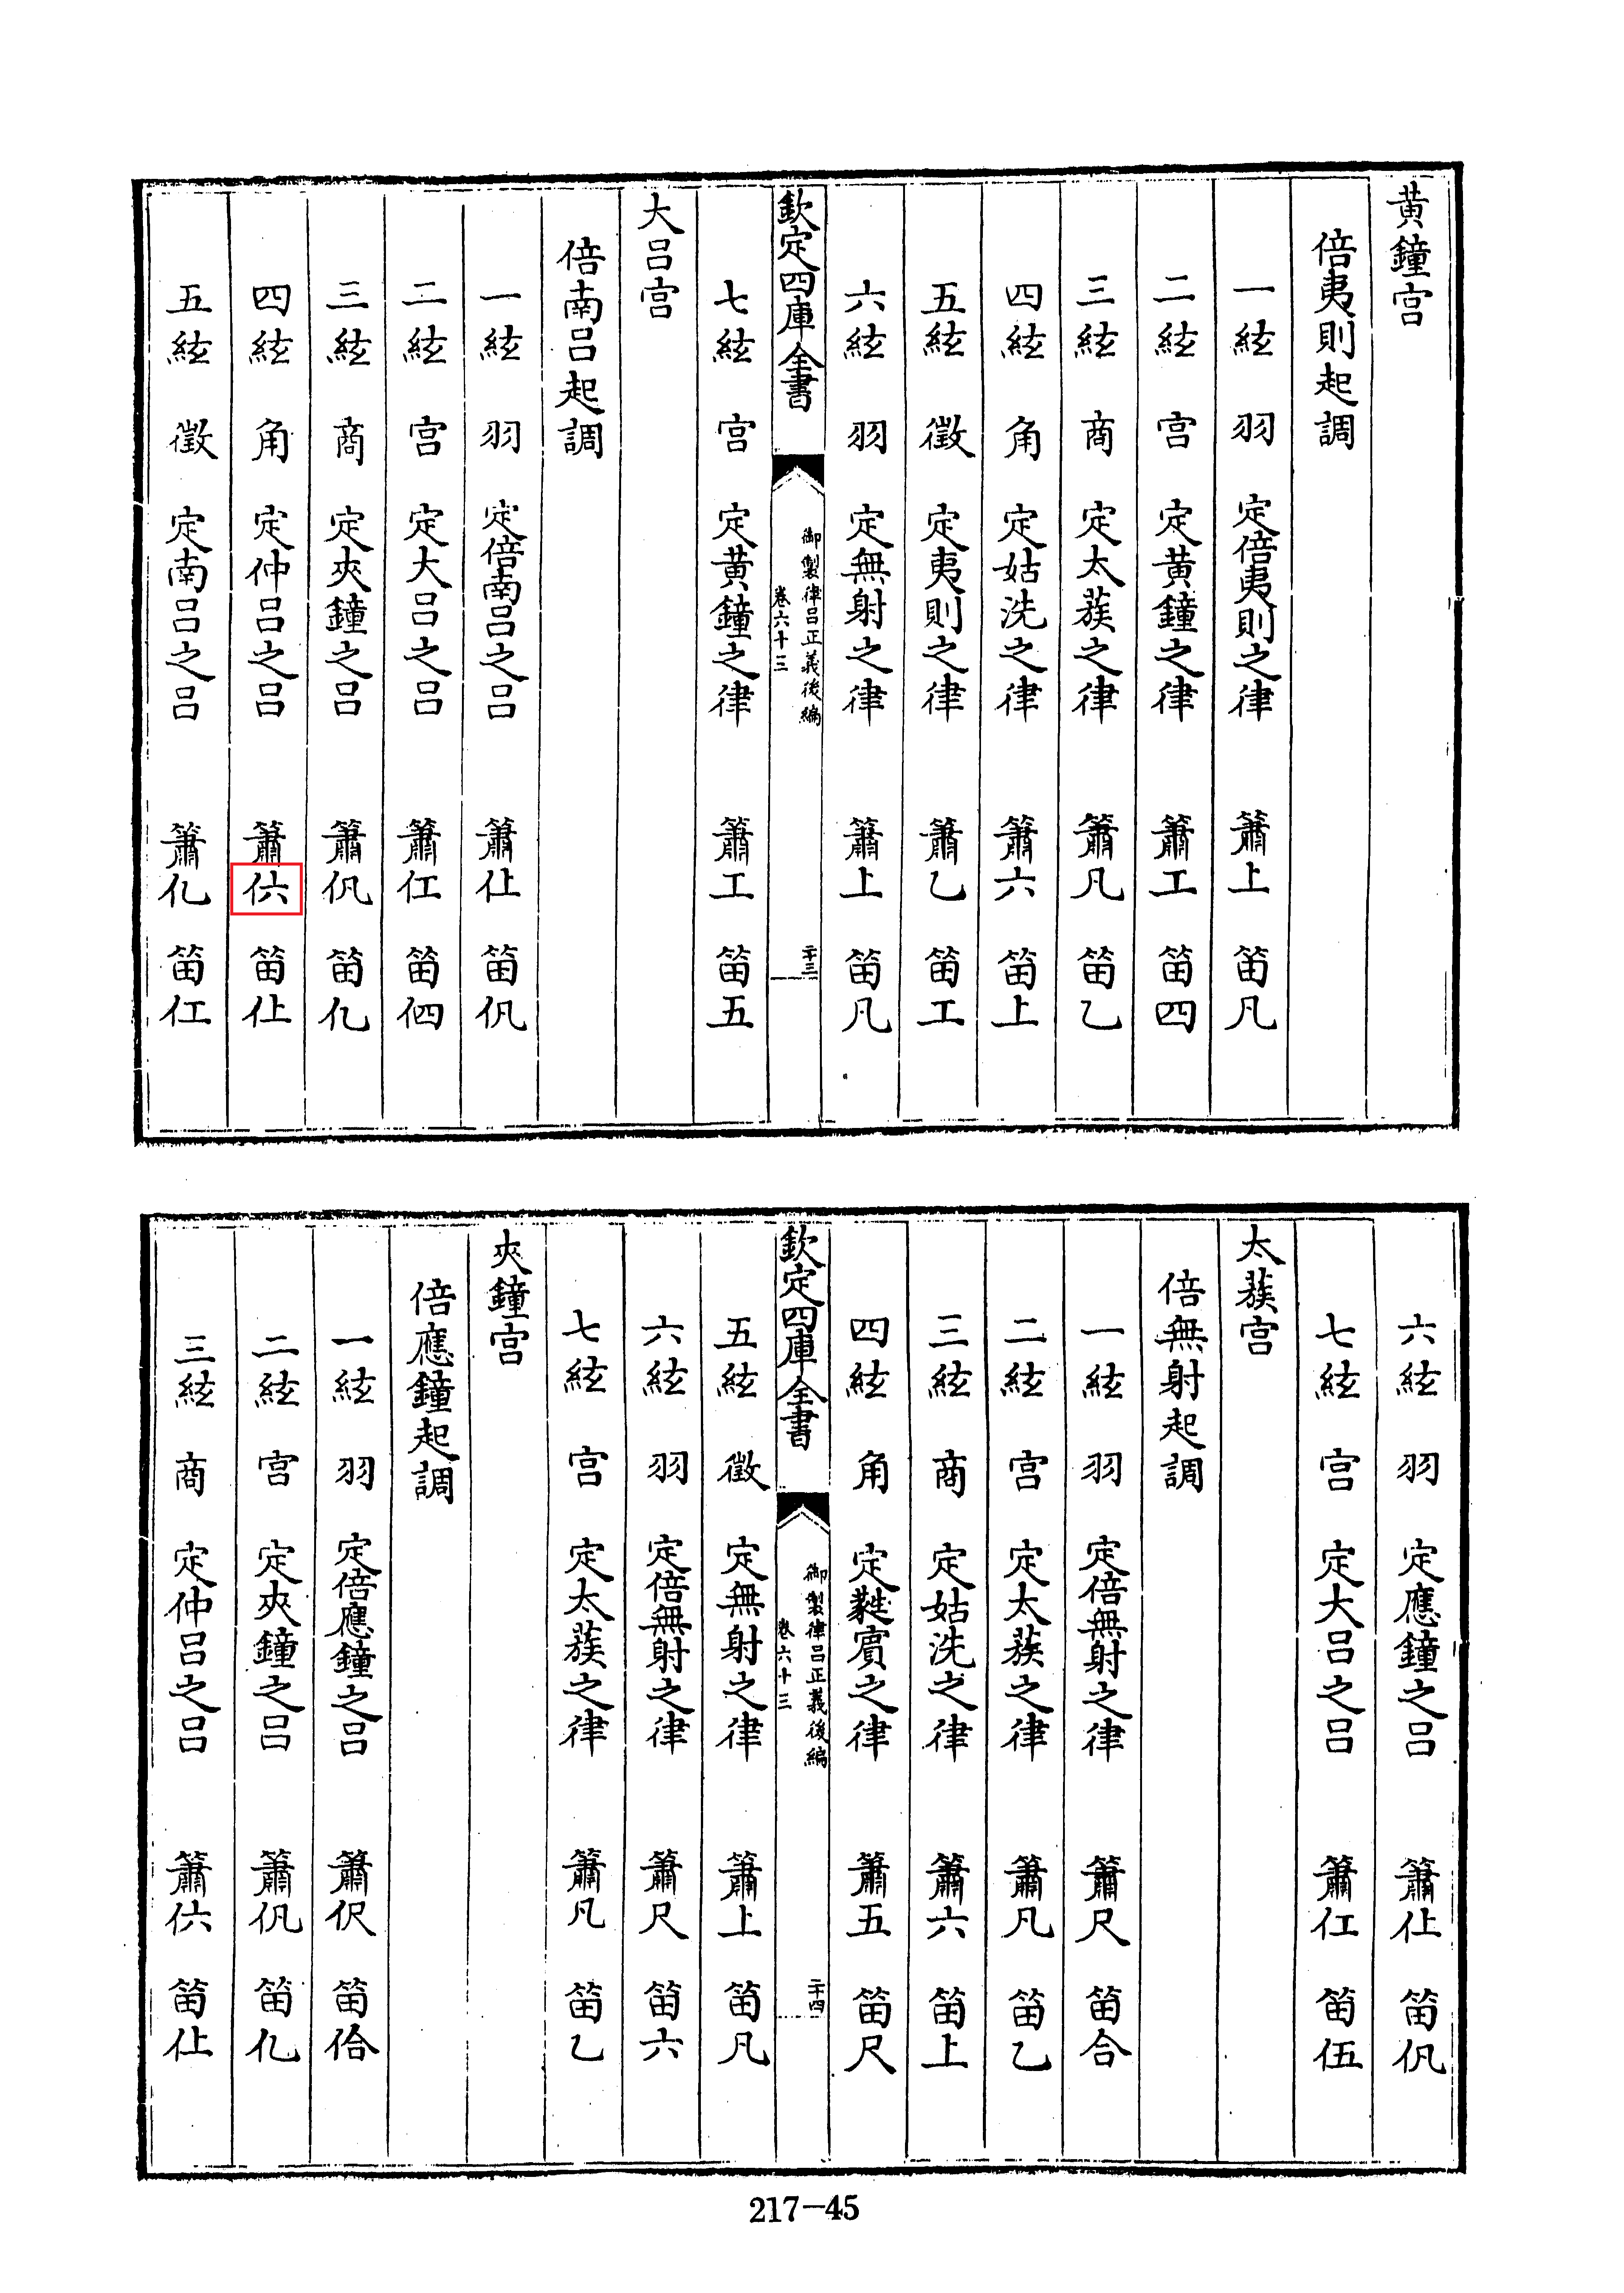 黄鐘宫
倍夷則起調
一絃 羽 定倍夷則之律 簫上 笛凡
二絃 宫 定黄鐘之律 簫工 笛四
三絃 商 定太蔟之律 簫凡 笛乙
四絃 角 定姑洗之律 簫六 笛上
五絃 徵 定夷則之律 簫乙 笛工
六絃 羽 定無射之律 簫上 笛凡
欽定四庫全書 御製律吕正義後編 卷六十三 二十三
七絃 宫 定黄鐘之律 簫工 笛五
大吕宫
倍南吕起調
一絃 羽 定倍南吕之吕 簫仩 笛𠆩
二絃 宫 定大吕之吕 簫仜 笛伵
三絃 商 定夾鐘之吕 簫𠆩 笛亿
四絃 角 定仲吕之吕 簫𠆾 笛仩
五絃 徵 定南吕之吕 簫亿 笛仜
六絃 羽 定應鐘之吕 簫仩 笛𠆩
七絃 宫 定大吕之吕 簫仜 笛伍
太蔟宫
倍無射起調
一絃 羽 定倍無射之律 簫尺 笛合
二絃 宫 定太蔟之律 簫凡 笛乙
三絃 商 定姑洗之律 簫六 笛上
四絃 角 定蕤賓之律 簫五 笛尺
欽定四庫全書 御製律吕正義後編 卷六十三 二十四
五絃 徵 定無射之律 簫上 笛凡
六絃 羽 定倍無射之律 簫尺 笛六
七絃 宫 定太蔟之律 簫凡 笛乙
夾鐘宫
倍應鐘起調
一絃 羽 定倍應鐘之吕 簫伬 笛佮
二絃 宫 定夾鐘之吕 簫𠆩 笛亿
三絃 商 定仲吕之吕 簫𠆾 笛仩
217-45